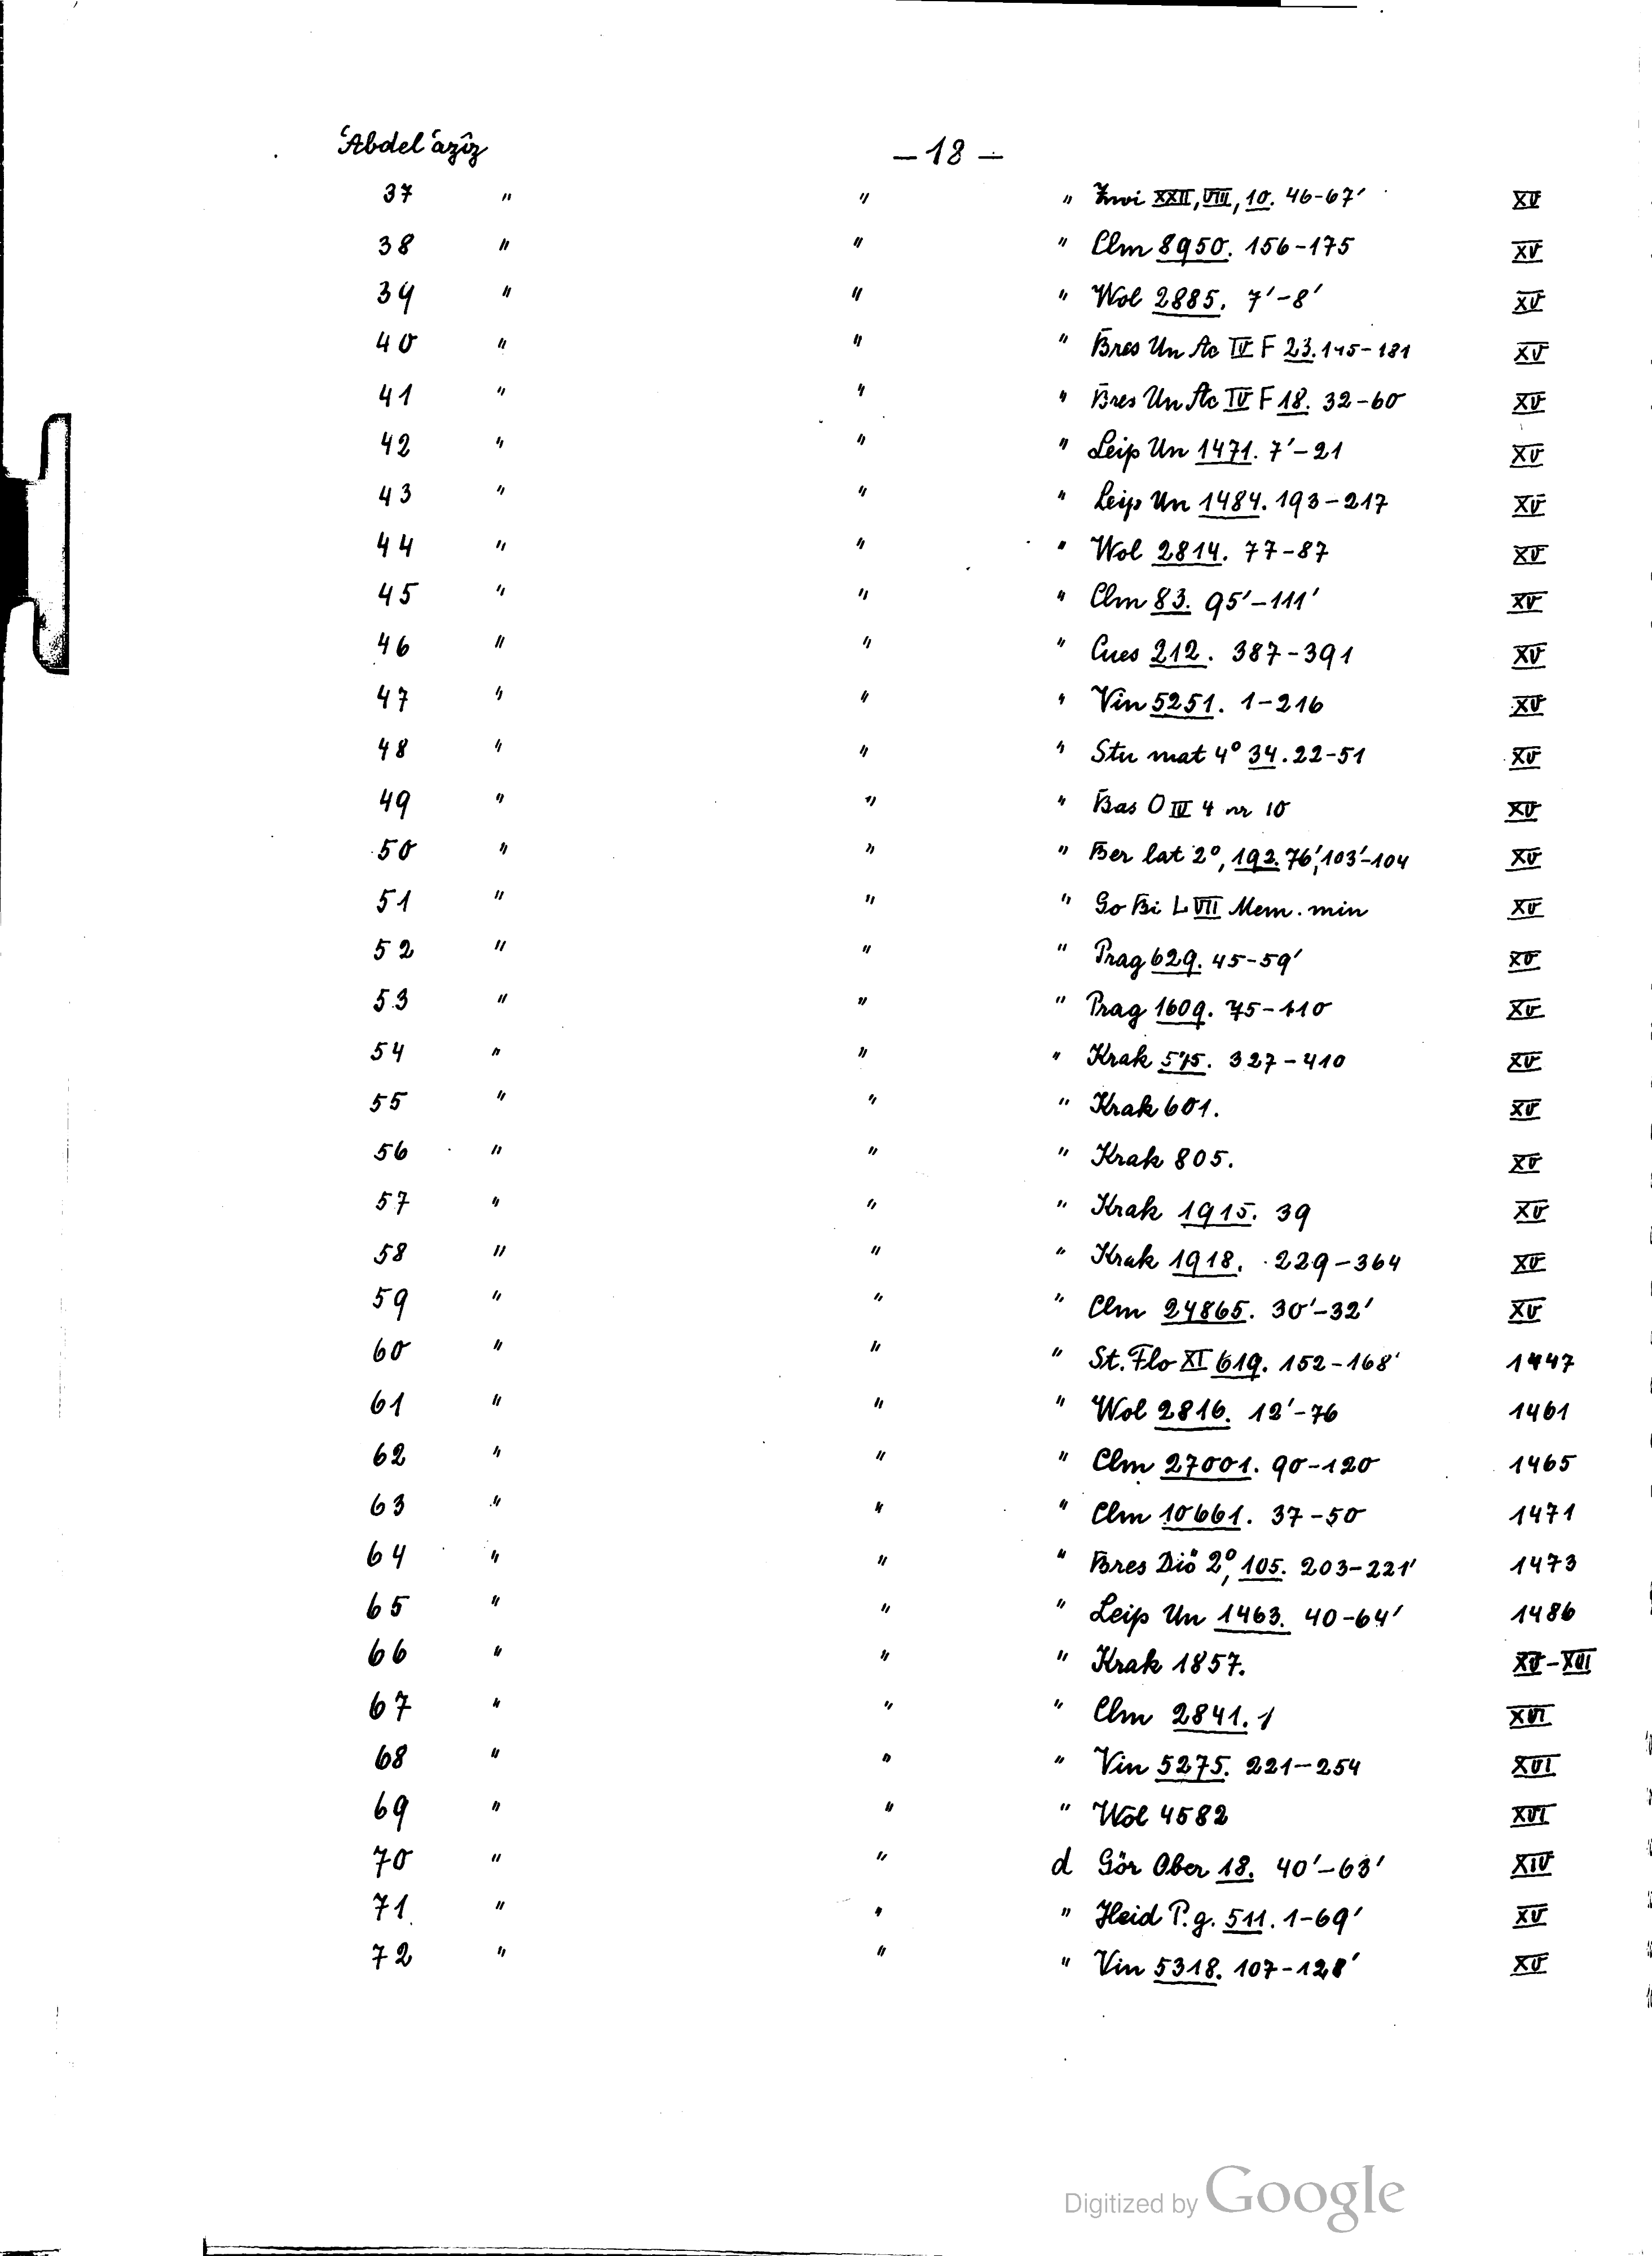 ʿAbdelʿazîz
— 18 —
37 " " " Zwi XXII, VIII, 10. 46-67' XV
38 " " " Clm 8950. 156-175 XV
39 " " " Wol 2885. 7'-8' XV
40 " " " Bres Un Ac IV F 23. 145-181 XV
41 " " " Bres Un Ac IV F 18. 32-60 XV
42 " " " Leip Un 1471. 7'-21 XV
43 " " " Leip Un 1484. 193-217 XV
44 " " " Wol 2814. 77-87 XV
45 " " " Clm 83. 95'-111' XV
46 " " " Cues 212. 387-391 XV
47 " " " Vin 5251. 1-216 XV
48 " " " Stu mat 4° 34. 22-51 XV
49 " " " Bas O III 4 nr 10 XV
50 " " " Ber lat 2°, 192. 76', 103'-104 XV
51 " " " Go Bi L VII Mem. min XV
52 " " " Prag 629. 45-59' XV
53 " " " Prag 1609. 75-110 XV
54 " " " Krak 575. 327-410 XV
55 " " " Krak 601. XV
56 " " " Krak 805. XV
57 " " " Krak 1915. 39 XV
58 " " " Krak 1918. 229-364 XV
59 " " " Clm 24865. 30'-32' XV
60 " " " St. Flo XI 619. 152-168' 1447
61 " " " Wol 2816. 12'-76 1461
62 " " " Clm 27001. 90-120 1465
63 " " " Clm 10661. 37-50 1471
64 " " " Bres Diö 2°, 105. 203-221' 1473
65 " " " Leip Un 1463. 40-64' 1486
66 " " " Krak 1857. XV-XVI
67 " " " Clm 2841. 1 XVI
68 " " " Vin 5275. 221-254 XVI
69 " " " Wol 4582 XVI
70 " " d Gör Ober 18. 40'-63' XIV
71 " " " Heid P. g. 511. 1-69' XV
72 " " " Vin 5318. 107-128' XV
Digitized by Google